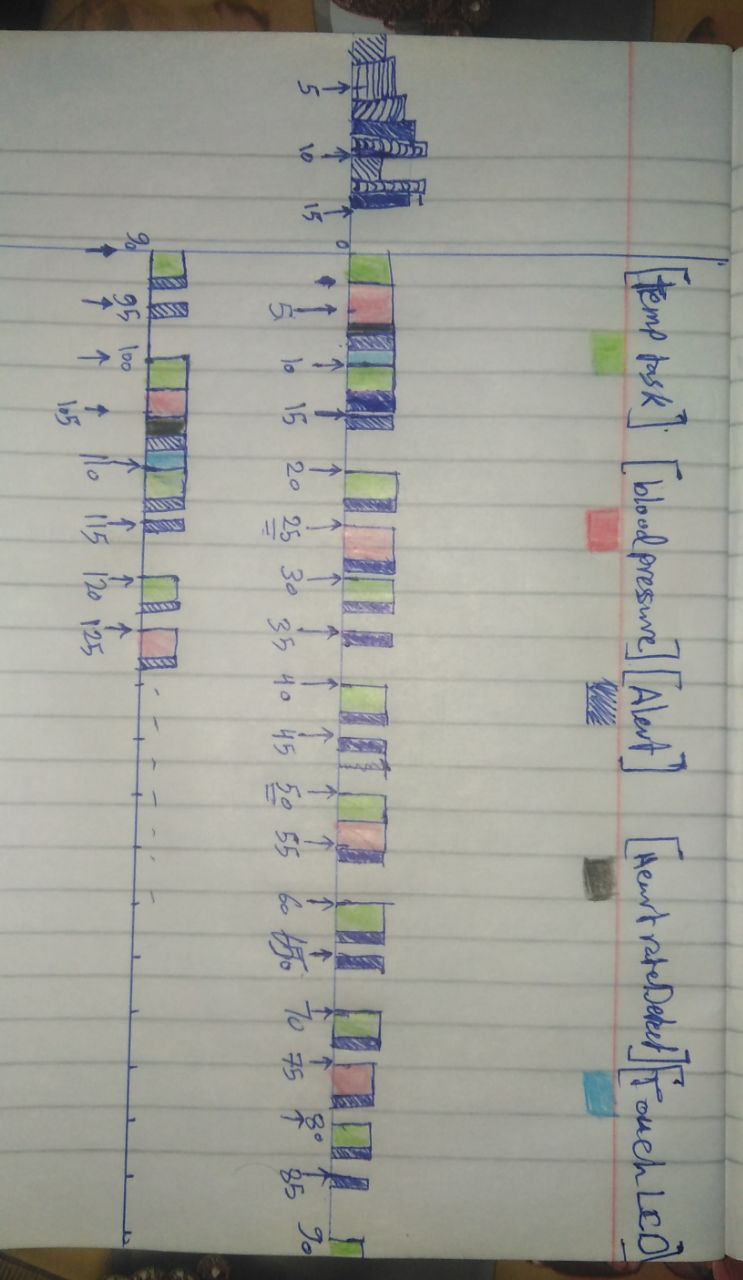 [temp task] [bloodpressure] [Alert] [Heart rateDetect] [Touch LCD]
0
5 10 15
5 10 15 20 25 30 35 40 45 50 55 60 70 75 80 85 90
90 95 100 105 110 115 120 125